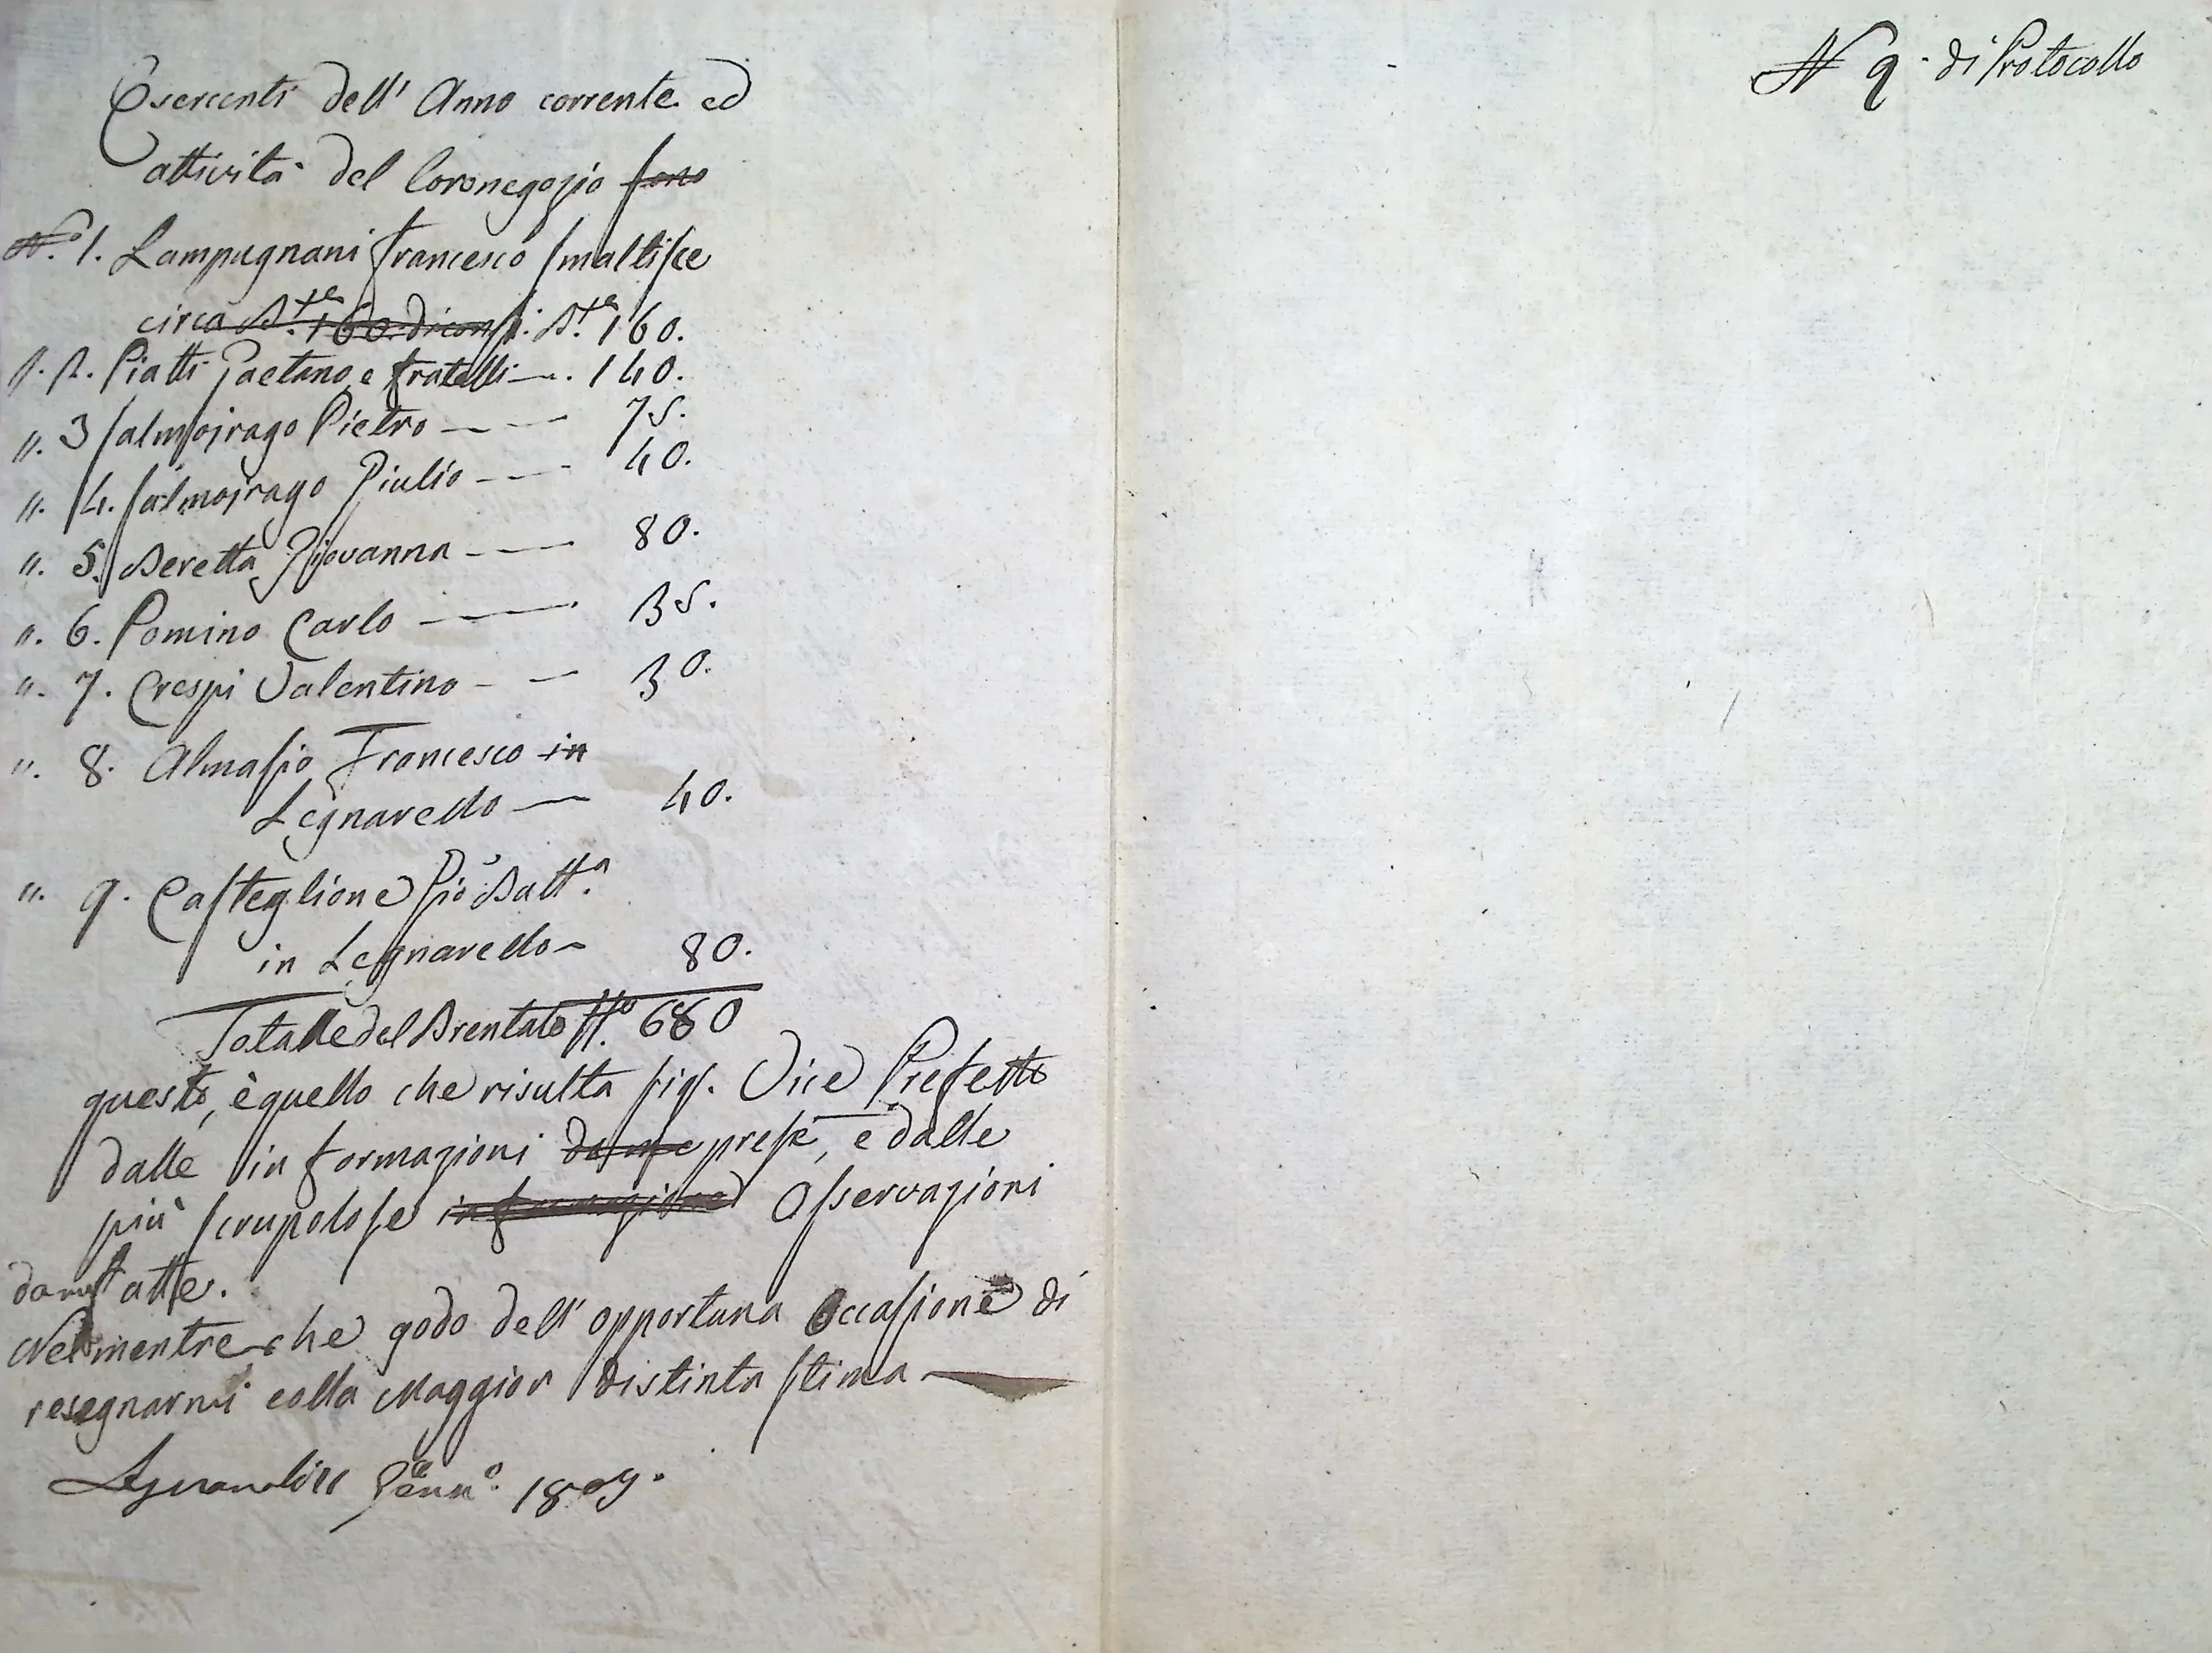 Esercenti dell' Anno corrente ed
attività del loro negozio sono
N.º 1. Lampugnani Francesco smaltisce
circa B.te 160. diconsi: B.te 160.
". 2. Piatti Gaetano, e fratelli —. 140.
". 3 Salmojrago Pietro — — 75.
". 4. Salmojrago Giulio — — 40.
". 5. Beretta Giovanna — — 80.
". 6. Pomino Carlo — — 35.
". 7. Crespi Valentino — — 30.
". 8. Almasio Francesco in
Legnarello — 40.
". 9. Casteglione Gio Batt.a
in Legnarello — 80.
Totalle del Brentato N.º 680
questo, è quello che risulta sig. Vice Prefetto
dalle informazioni da me prese, e dalle
più scrupolose informazione Osservazioni
da me fatte.
Nel mentre che godo dell' opportuna Occasione di
resegnarmi colla Maggior distinta stima
Legnano li Genn.º 1809.
N 9. di Protocollo